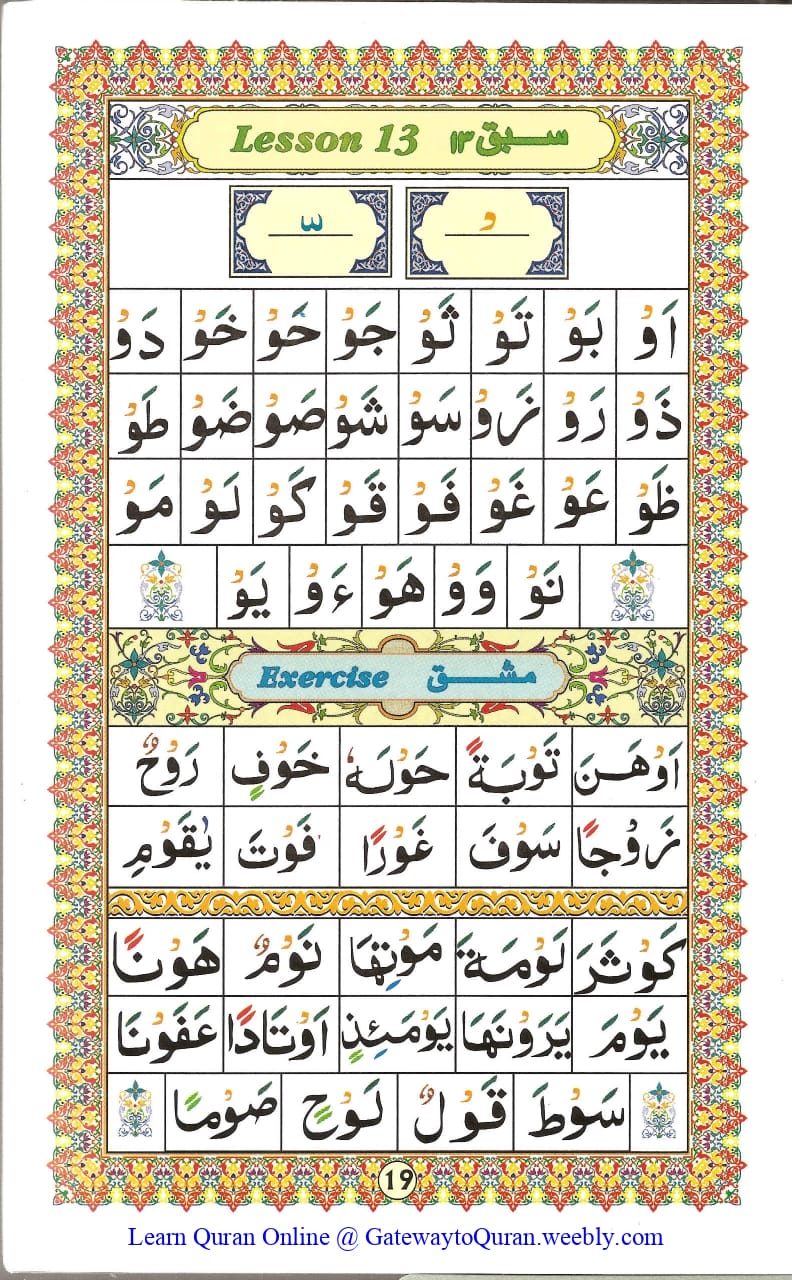 Lesson 13 سبق ١٣
اَوْ بَوْ تَوْ ثَوْ جَوْ حَوْ خَوْ دَوْ
ذَوْ رَوْ زَوْ سَوْ شَوْ صَوْ ضَوْ طَوْ
ظَوْ عَوْ غَوْ فَوْ قَوْ كَوْ لَوْ مَوْ
نَوْ وَوْ هَوْ ءَوْ يَوْ
Exercise مشق
اَوْهَنَ تَوْبَةً حَوْلَهٗ خَوْفٍ رَوْحٌ
زَوْجًا سَوْفَ غَوْرًا فَوْتَ يٰقَوْمِ
كَوْثَرَ لَوْمَةَ مَوْتِهَا نَوْمٌ هَوْنًا
يَوْمَ يَرَوْنَهَا يَوْمَئِذٍ اَوْتَادًا عَفَوْنَا
سَوْطَ قَوْلٌ لَوْحٍ صَوْمًا
19
Learn Quran Online @ GatewaytoQuran.weebly.com